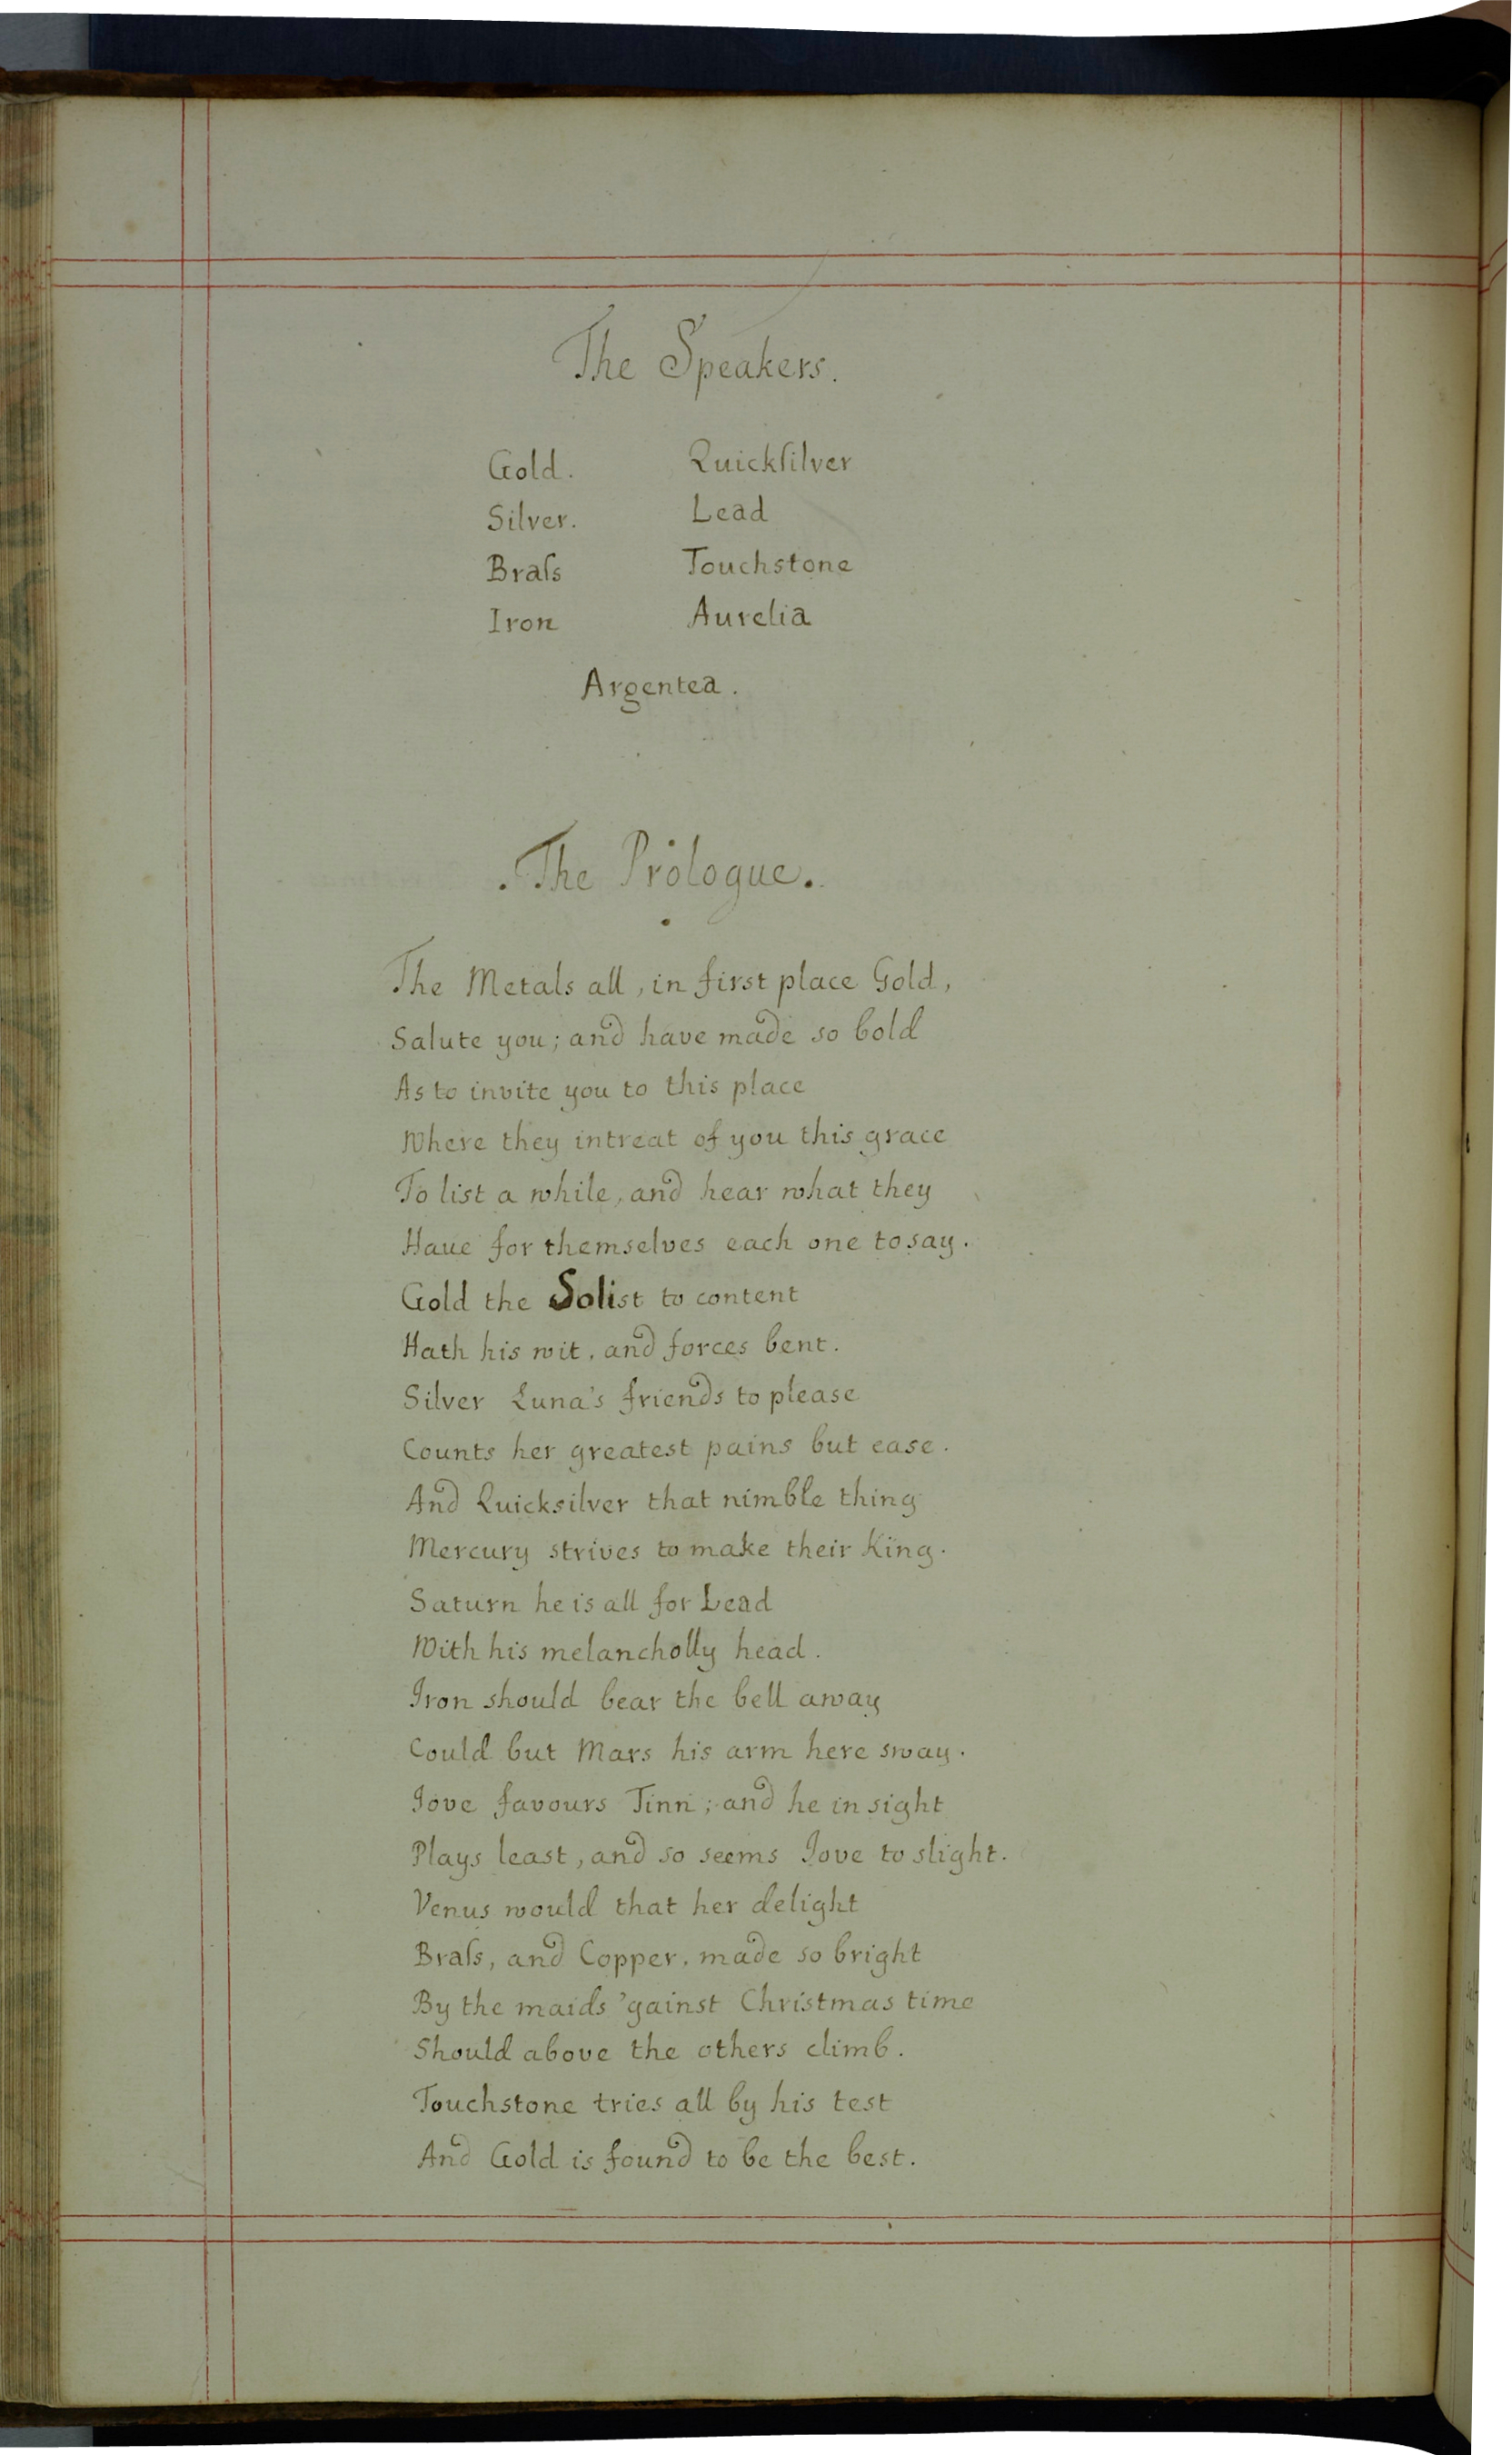 The Speakers.
Gold. Quickſilver
Silver. Lead
Braſs Touchstone
Iron Aurelia
Argentea.
The Prologue.
The Metals all, in first place Gold,
Salute you; and have made so bold
As to invite you to this place
Where they intreat of you this grace
To list a while, and hear what they
Haue for themselves each one to say.
Gold the Solist to content
Hath his wit, and forces bent.
Silver Luna's friends to please
Counts her greatest pains but ease.
And Quicksilver that nimble thing
Mercury strives to make their King.
Saturn he is all for Lead
With his melancholly head.
Iron should bear the bell away
Could but Mars his arm here sway.
Iove favours Tinn; and he in sight
Plays least, and so seems Iove to slight.
Venus would that her delight
Braſs, and Copper, made so bright
By the maids 'gainst Christmas time
Should above the others climb.
Touchstone tries all by his test
And Gold is found to be the best.